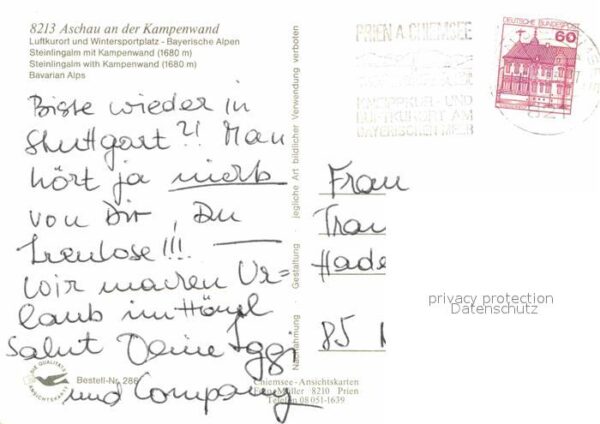 8213 Aschau an der Kampenwand
Luftkurort und Wintersportplatz - Bayerische Alpen
Steinlingalm mit Kampenwand (1680 m)
Steinlingalm with Kampenwand (1680 m)
Bavarian Alps
Biste wieder in
Stuttgart?! Man
hört ja nichts
von Dir, Du
treulose!!!
Wir machen Ur=
laub im
Salut Deine Iggi
und Company
DIE QUALITÄTS
ANSICHTSKARTE
Bestell-Nr. 286
jegliche Art bildlicher Verwendung verboten
Gestaltung
Nachahmung
Chiemsee-Ansichtskarten
Müller 8210 Prien
Telefon 08051-1639
PRIEN A. CHIEMSEE
KNEIPPKUR- UND
LUFTKURORT AM
BAYERISCHEN MEER
DEUTSCHE BUNDESPOST
60
Frau
Trau
Hade
85
privacy protection
Datenschutz